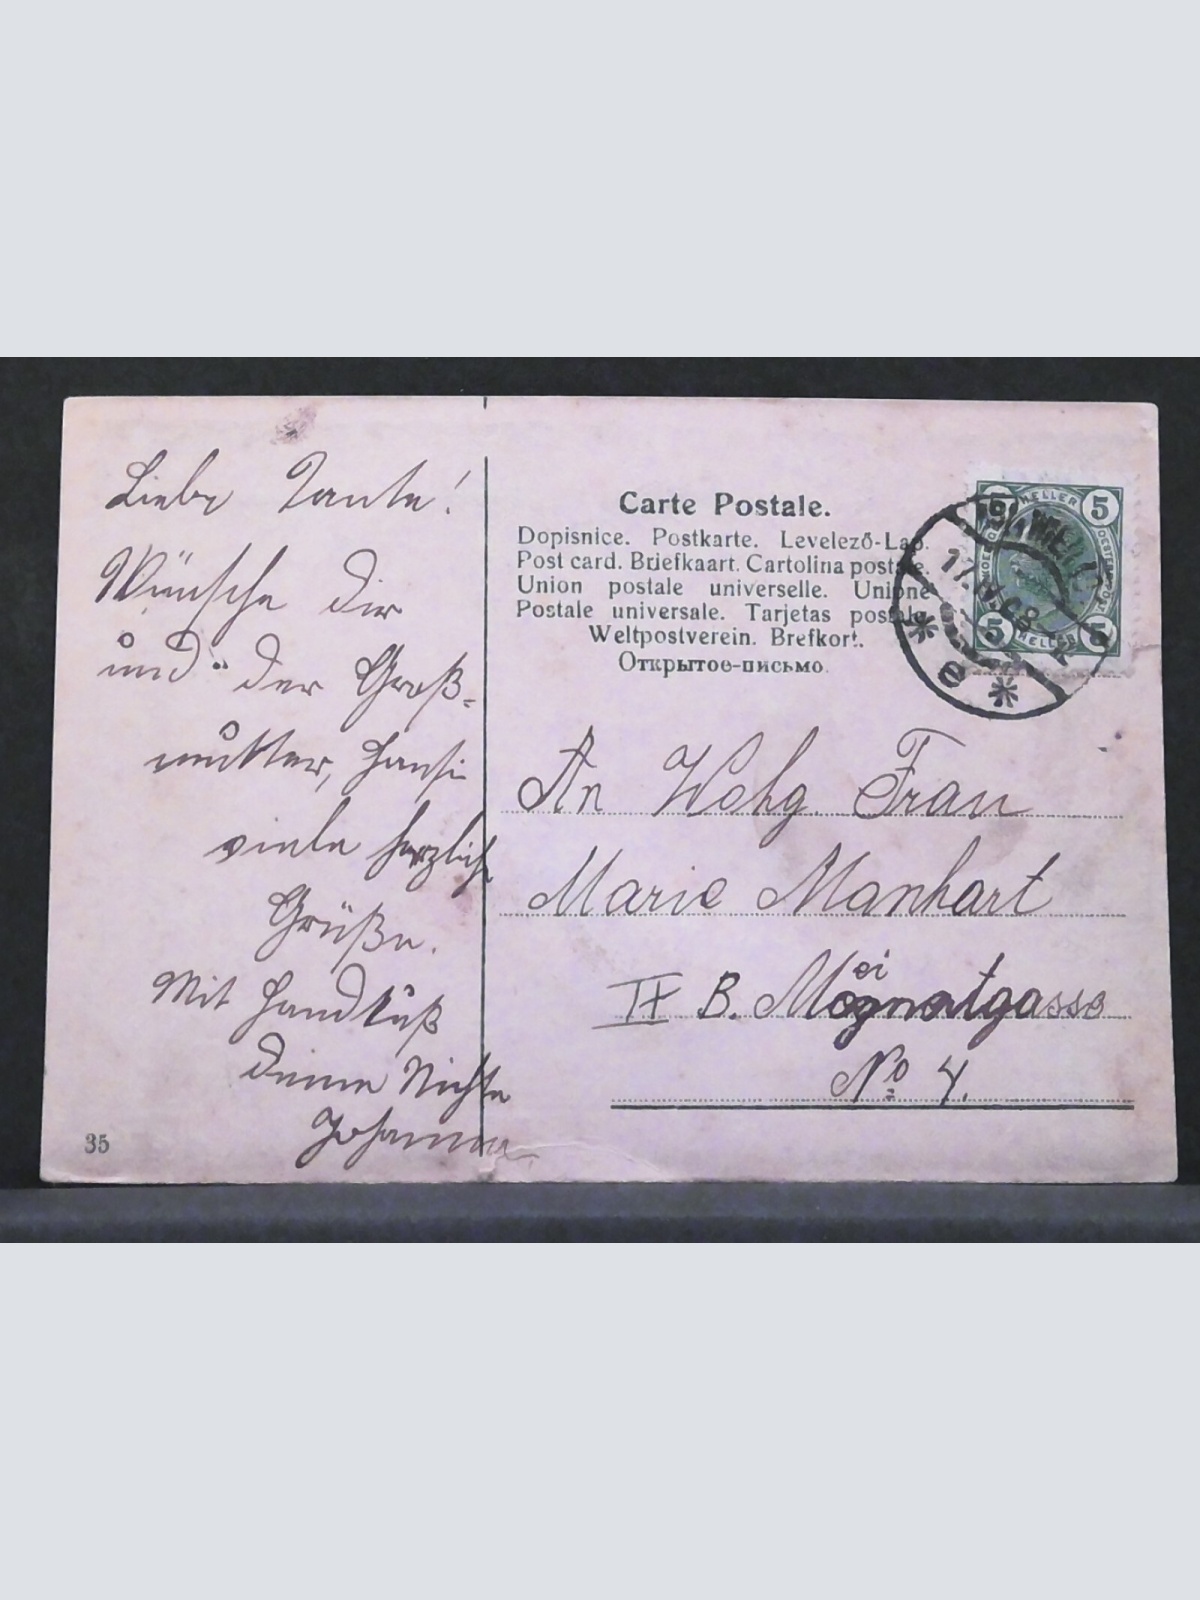 Liebe Tante!
Wünsche Dir
und der Groß-
mutter, Hansi
viele herzlich
Grüße.
Mit Handkuß
Deine Nichte
Johanna
35
Carte Postale.
Dopisnice. Postkarte. Levelező-Lap.
Post card. Briefkaart. Cartolina postale.
Union postale universelle. Unione
Postale universale. Tarjetas postale
Weltpostverein. Brefkort.
Открытое-письмо.
5 HELLER 5
17 IV 08
5 HELLER 5
* e *
An Wohg. Frau
Marie Manhart
B.
No 4.